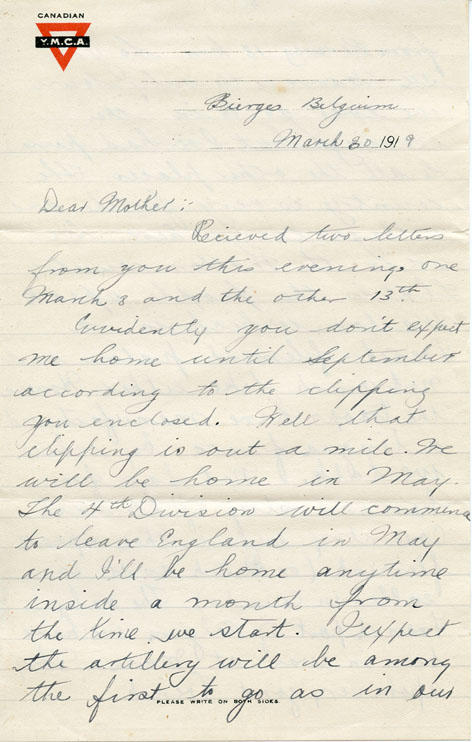 CANADIAN
Y.M.C.A.
Bierges Belguim
March 30 1919
Dear Mother:;
Recieved two letters
from you this evening, one
March 3 and the other 13th.
Evvidently you don't expect
me home until September
according to the clipping
you enclosed. Well that
clipping is out a mile. We
will be home in May.
The 4th Division will commence
to leave England in May
and I'll be home anytime
inside a month from
the time we start. I expect
the artillery will be among
the first to go as in our
PLEASE WRITE ON BOTH SIDES.